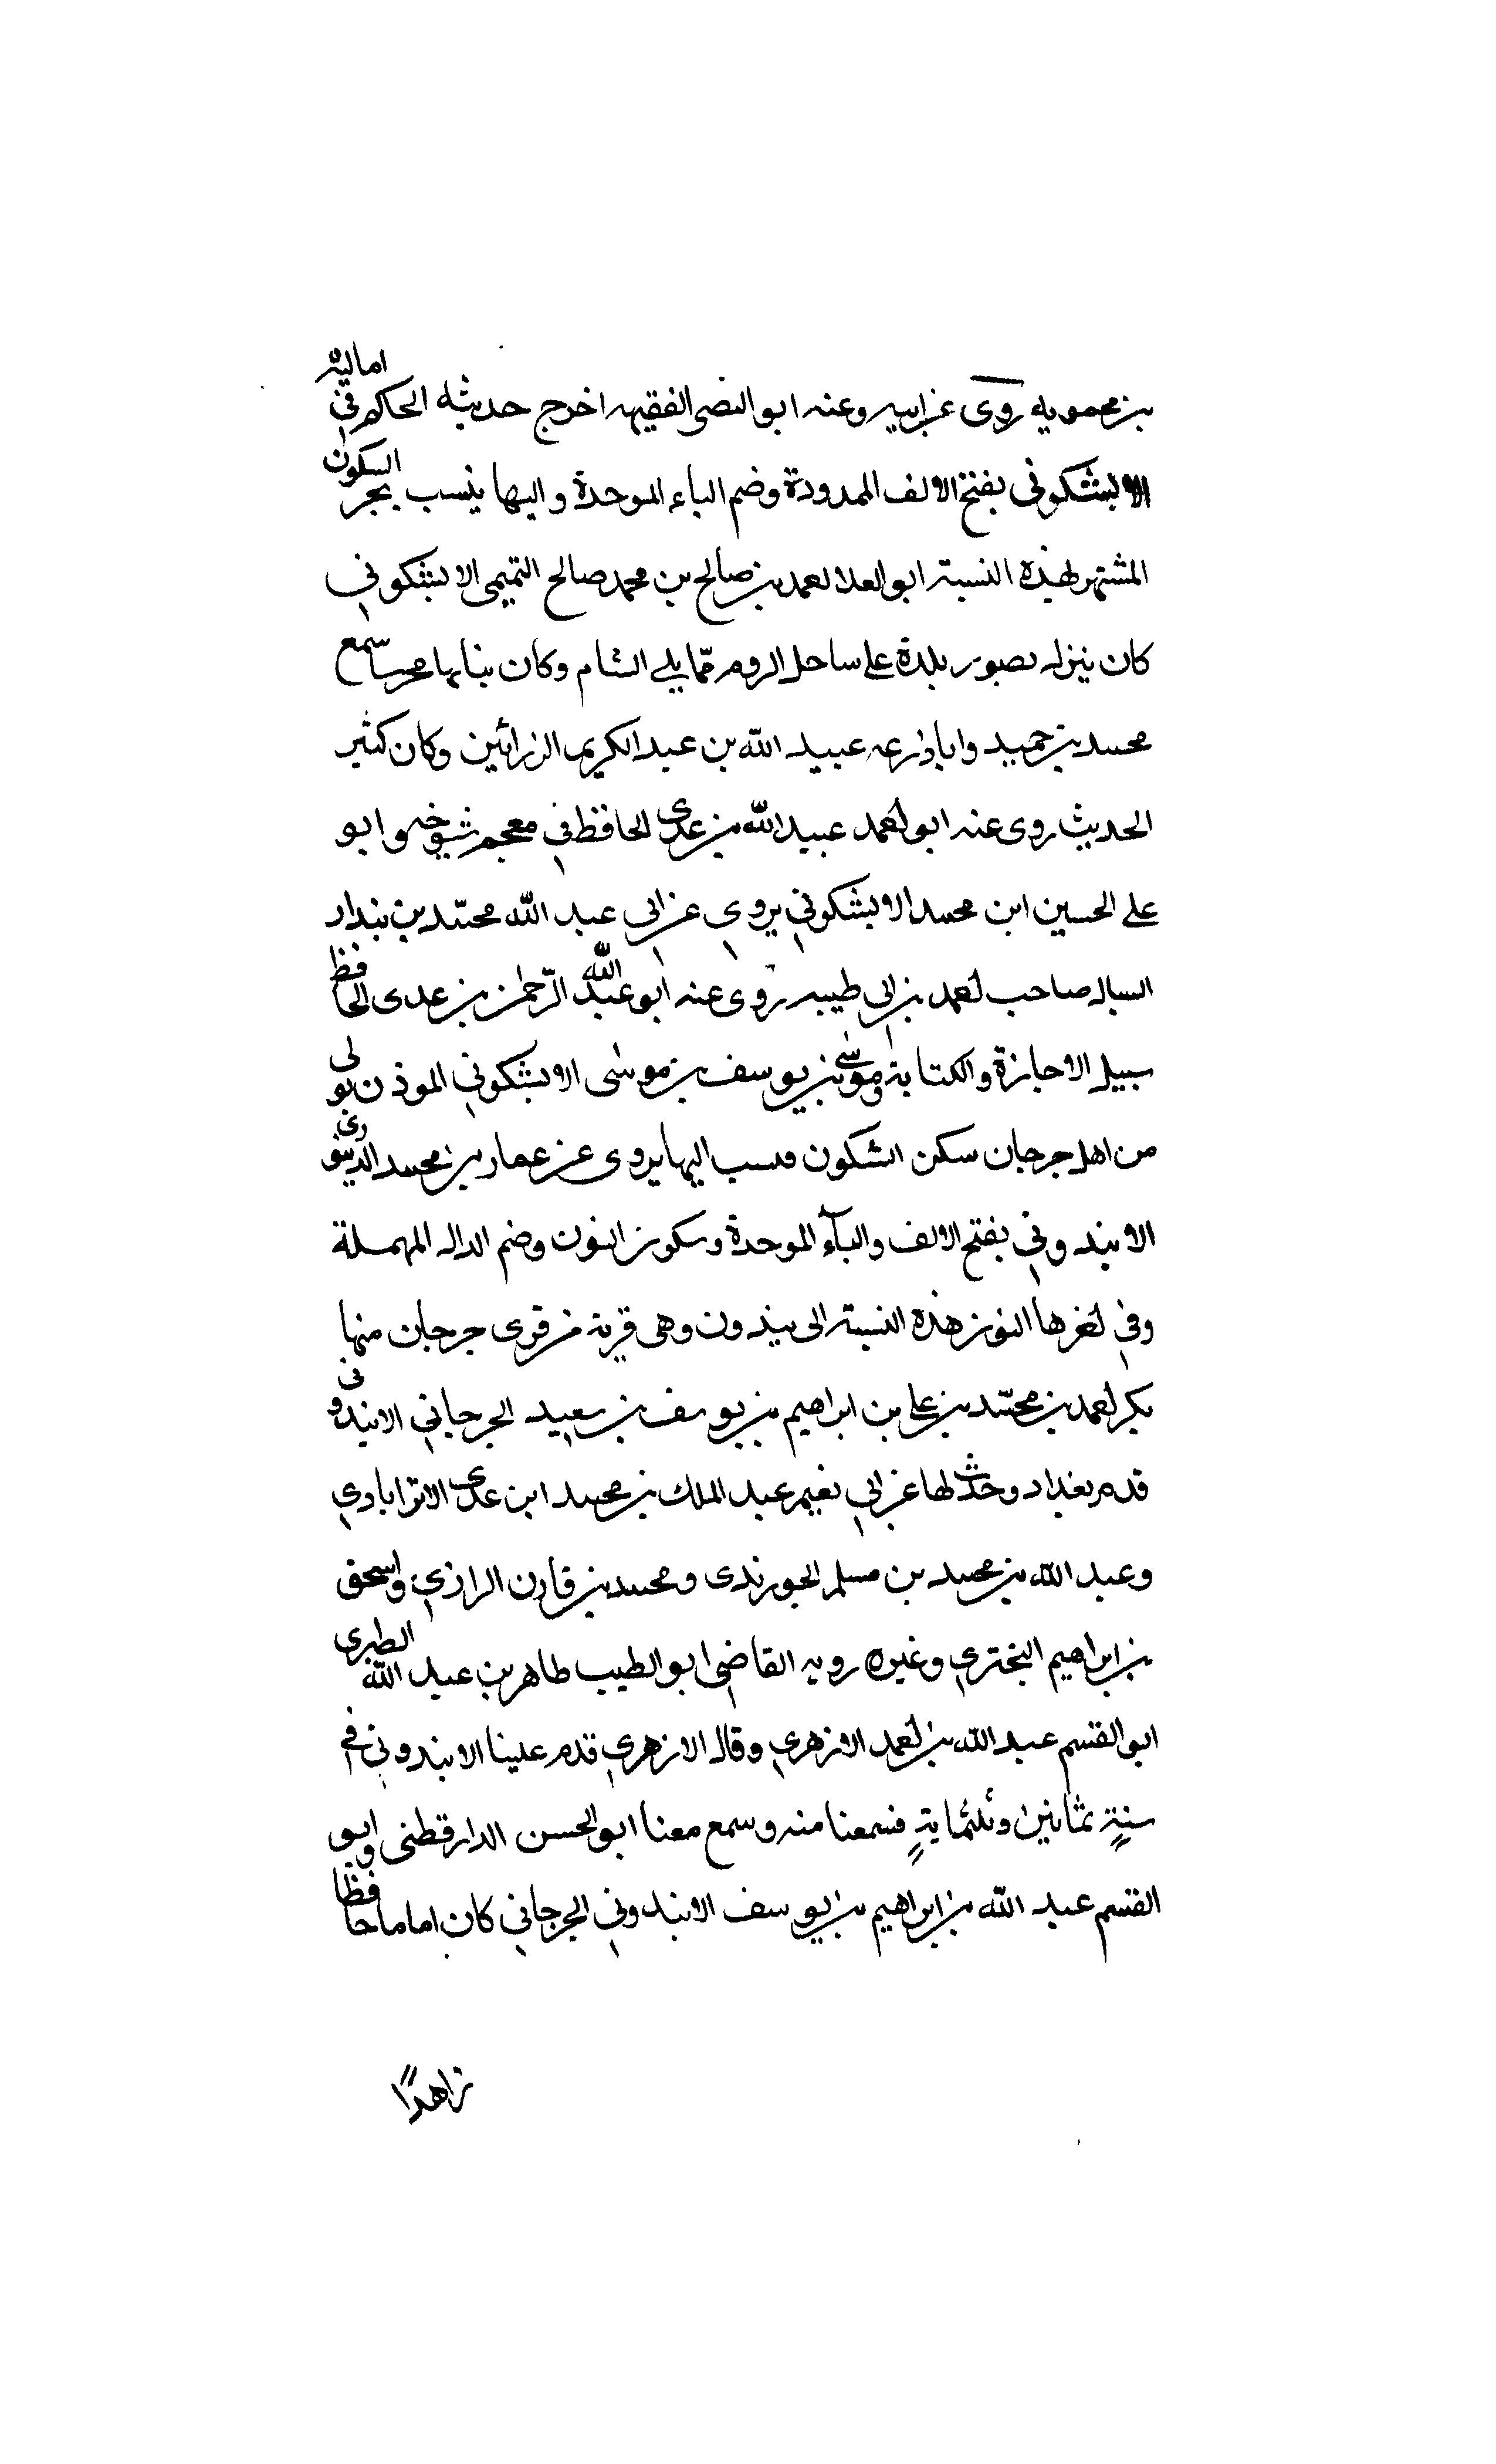 بن محمويه روى عن ابيه وعنه ابو النضر الفقيه اخرج حديثه الحاكم في اماليه
الابشكوني بفتح الالف الممدودة وضم الباء الموحدة واليها ينسب بحر السكون
المشتهر لهذه النسبة ابو العلا احمد بن صالح بن محمد صالح التميمي الابشكوني
كان ينزل بصور بلدة على ساحل الروم مما يلي الشام وكان بنا بها محرسا سمع
محمد بن حميد وابا زرعه عبيد الله بن عبد الكريم الرازيين وكان كثير
الحديث روى عنه ابو احمد عبيد الله بن عدي الحافظ في معجم شيوخه وابو
علي الحسين ابن محمد الابشكوني يروي عن ابي عبد الله محمد بن بندار
السباك صاحب احمد بن ابي طيبه روى عنه ابو عبد الله الرحمن بن عدى الحافظ
سبيل الاجازة والكتابة وموسى بن يوسف بن موسى الابشكوني الموذن يولى
من اهل جرجان سكن اشكون فنسب اليها يروى عن عمار بن محمد الدينورى
الابندوني بفتح الالف والبآء الموحدة وسكون النون وضم الدال المهملة
وفي اخرها النون هذه النسبة الى بندون وهى قرية من قرى جرجان منها
بكر احمد بن محمد بن علي بن ابراهيم بن يوسف بن سعيد الجرجاني الابندونى
قدم بغداد وحدث لها عن ابي نعيم عبد الملك بن محمد ابن عدي الاترابادي
وعبد الله بن محمد بن مسلم الجورندى ومحمد بن قارن الرازي واسحق
بن ابراهيم البختري وغيره رويه القاضي ابو الطيب طاهر بن عبد الله الطبرى
ابو القسم عبد الله بن احمد الازهري وقال الازهري قدم علينا الابندوني في
سنةٍ ثمانين وثلثمايةٍ فسمعنا منه وسمع معنا ابو الحسن الدارقطنى وابو
القسم عبد الله بن ابراهيم بن يوسف الابندوني الجرجاني كان اماما حافظا
زاهدًا